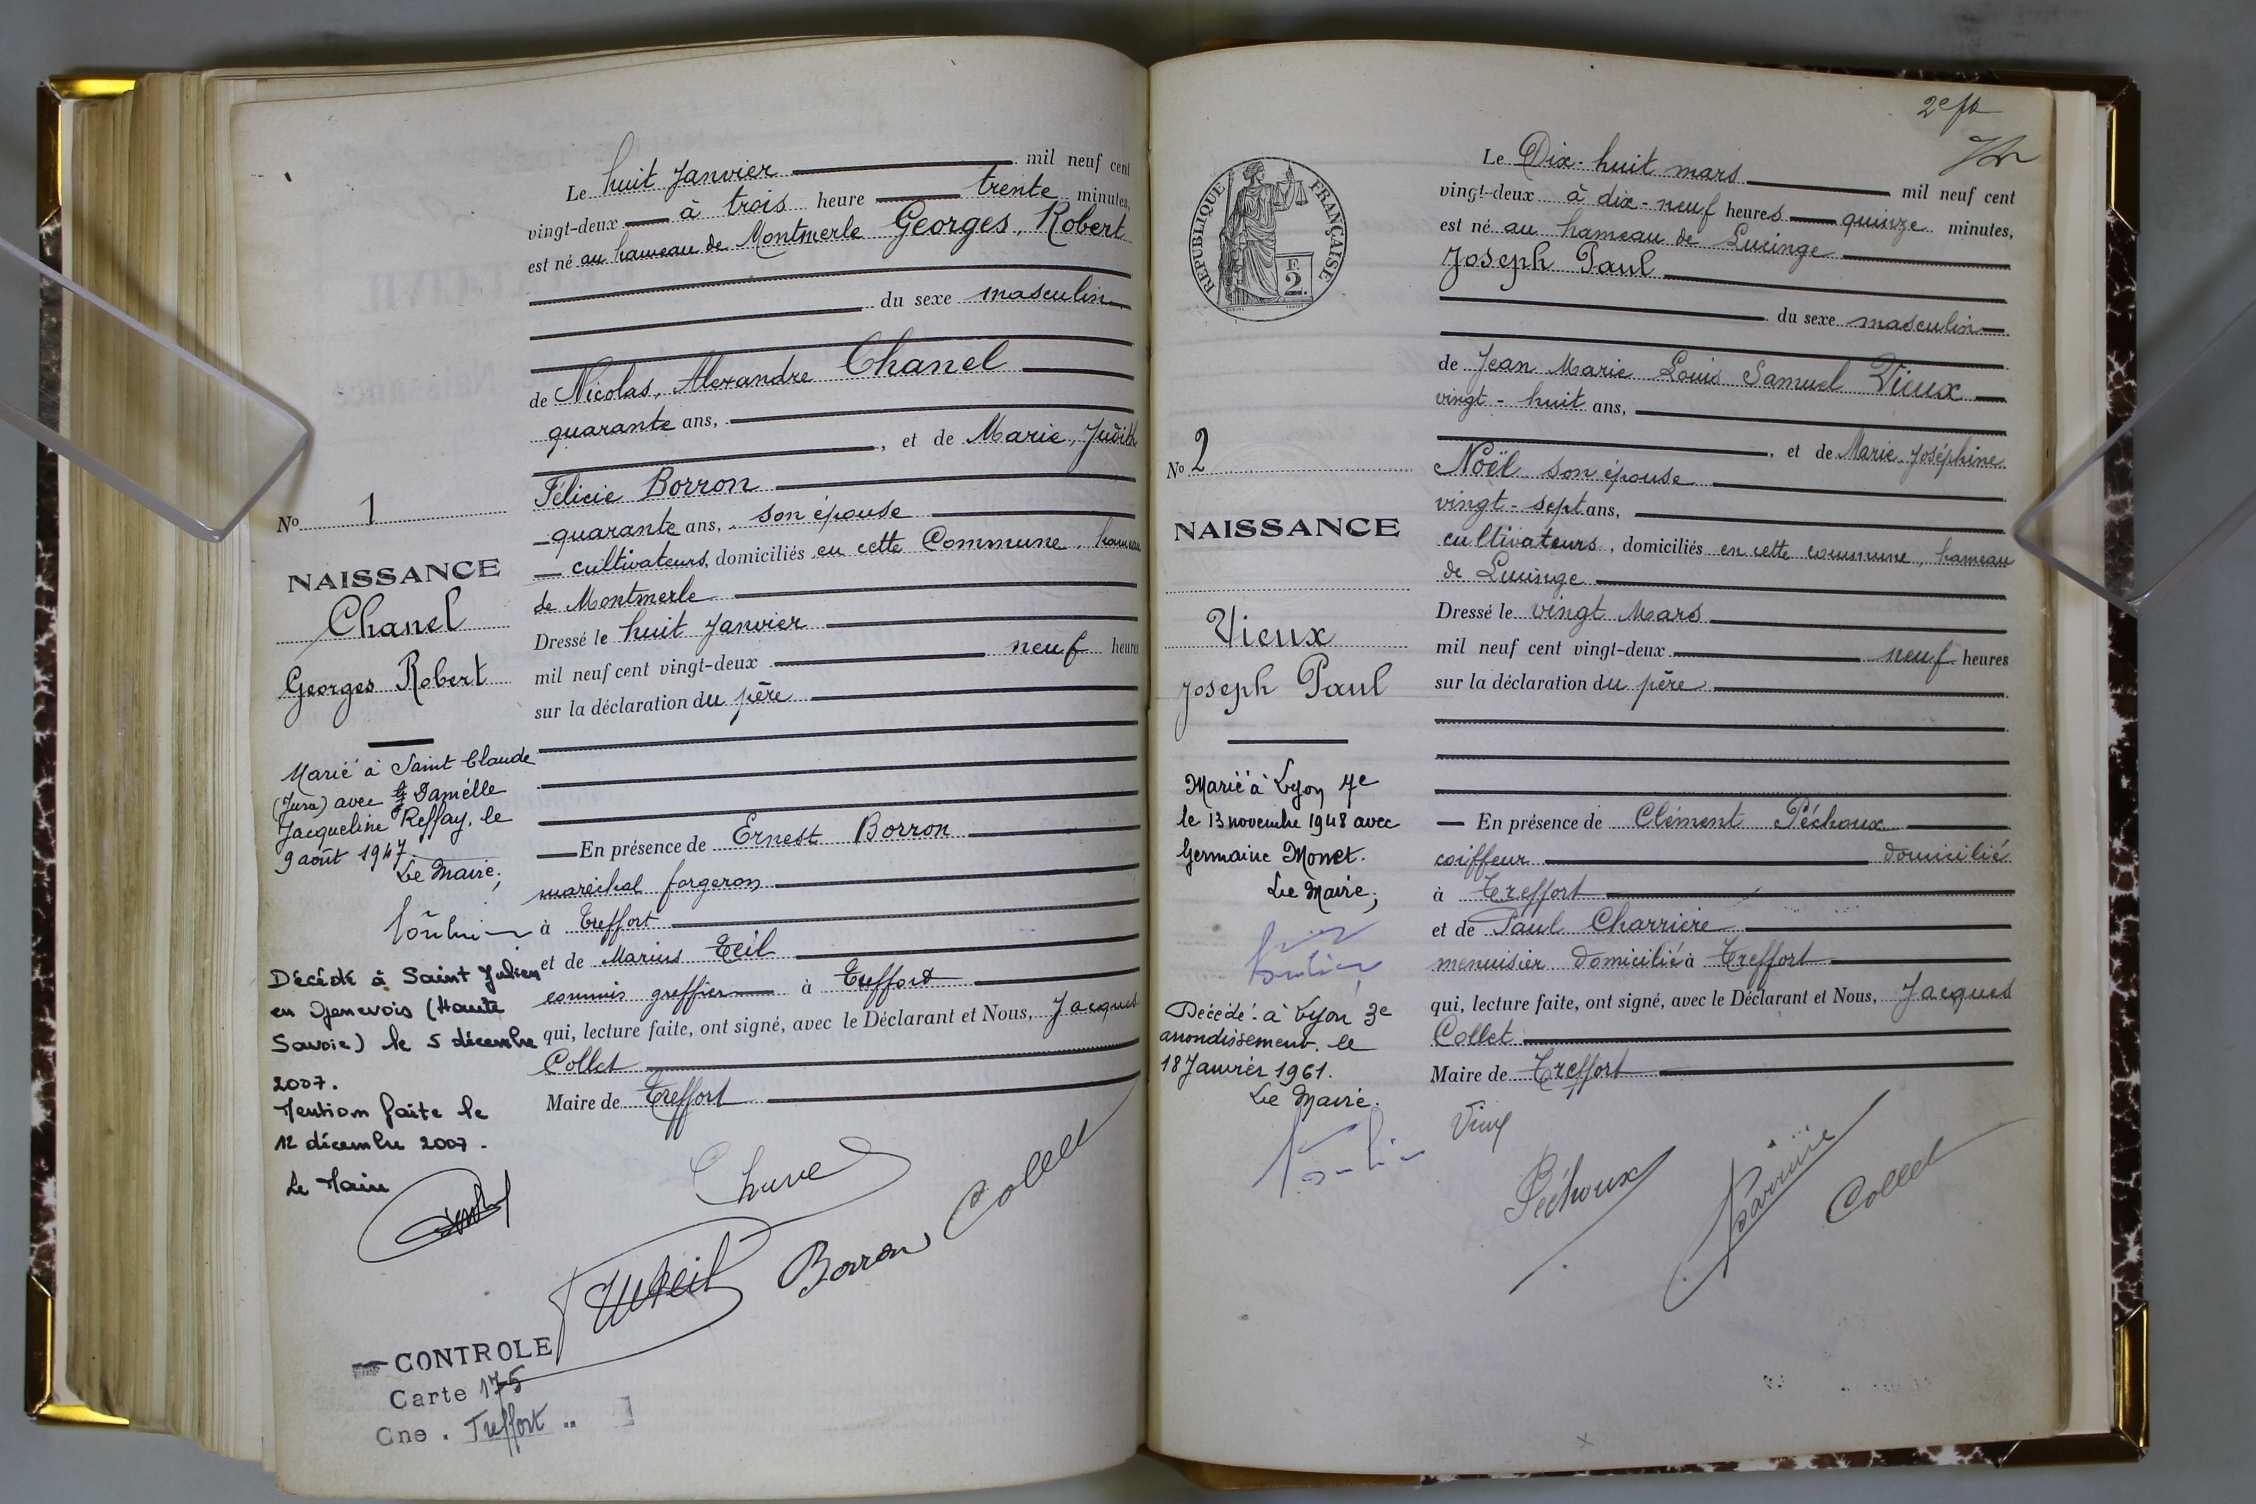 Le huit Janvier mil neuf cent
vingt-deux à trois heure trente minutes,
est né au hameau de Montmerle Georges, Robert
du sexe masculin
de Nicolas, Alexandre Chanel
quarante ans,
, et de Marie, Judith
Félicie Borron
quarante ans, son épouse
cultivateurs, domiciliés en cette Commune, hameau
de Montmerle
Dressé le huit Janvier
mil neuf cent vingt-deux neuf heures
sur la déclaration du père
En présence de Ernest Borron
maréchal forgeron
à Treffort
et de Marius Teil
commis greffier à Treffort
qui, lecture faite, ont signé, avec le Déclarant et Nous, Jacques
Collet
Maire de Treffort
Borron Collet
No 1
NAISSANCE
Chanel
Georges Robert
Marié à Saint Claude
(Jura) avec Danielle
Jacqueline Reffay, le
9 août 1947
Le Maire,
Décédé à Saint Julien
en Genevois (Haute
Savoie) le 5 décembre
2007.
Mention faite le
12 décembre 2007.
Le Maire
CONTROLE
Carte 175
Cne . Treffort
2e fo
REPUBLIQUE FRANÇAISE
F.
2.
Le Dix-huit mars mil neuf cent
vingt-deux à dix-neuf heures quinze minutes,
est né au hameau de Lucinge
Joseph Paul
du sexe masculin
de Jean Marie Louis Samuel Vieux
vingt-huit ans,
, et de Marie Joséphine
Noël son épouse
vingt-sept ans,
cultivateurs, domiciliés en cette commune, hameau
de Lucinge
Dressé le vingt Mars
mil neuf cent vingt-deux neuf heures
sur la déclaration du père
En présence de Clément Péchoux
coiffeur domicilié
à Treffort
et de Paul Charrière
menuisier domicilié à Treffort
qui, lecture faite, ont signé, avec le Déclarant et Nous, Jacques
Collet
Maire de Treffort
Péchoux Collet
No 2
NAISSANCE
Vieux
Joseph Paul
Marié à Lyon 7e
le 13 novembre 1948 avec
Germaine Monet.
Le Maire,
Décédé à Lyon 3e
arrondissement le
18 Janvier 1961.
Le Maire.